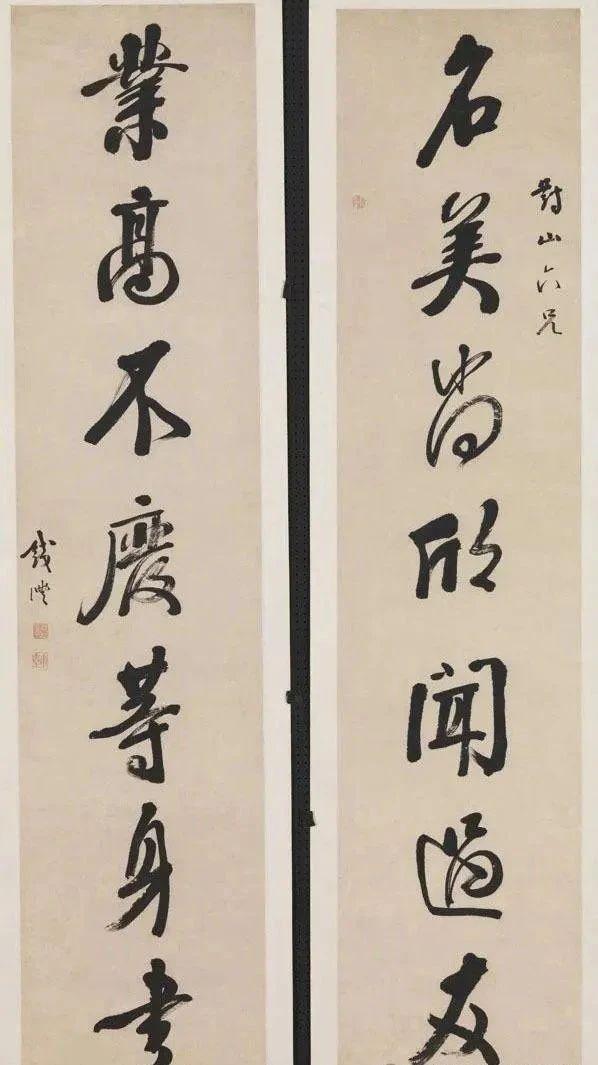 對山六兄
名美尚欣聞過友
業高不廢等身書
錢灃